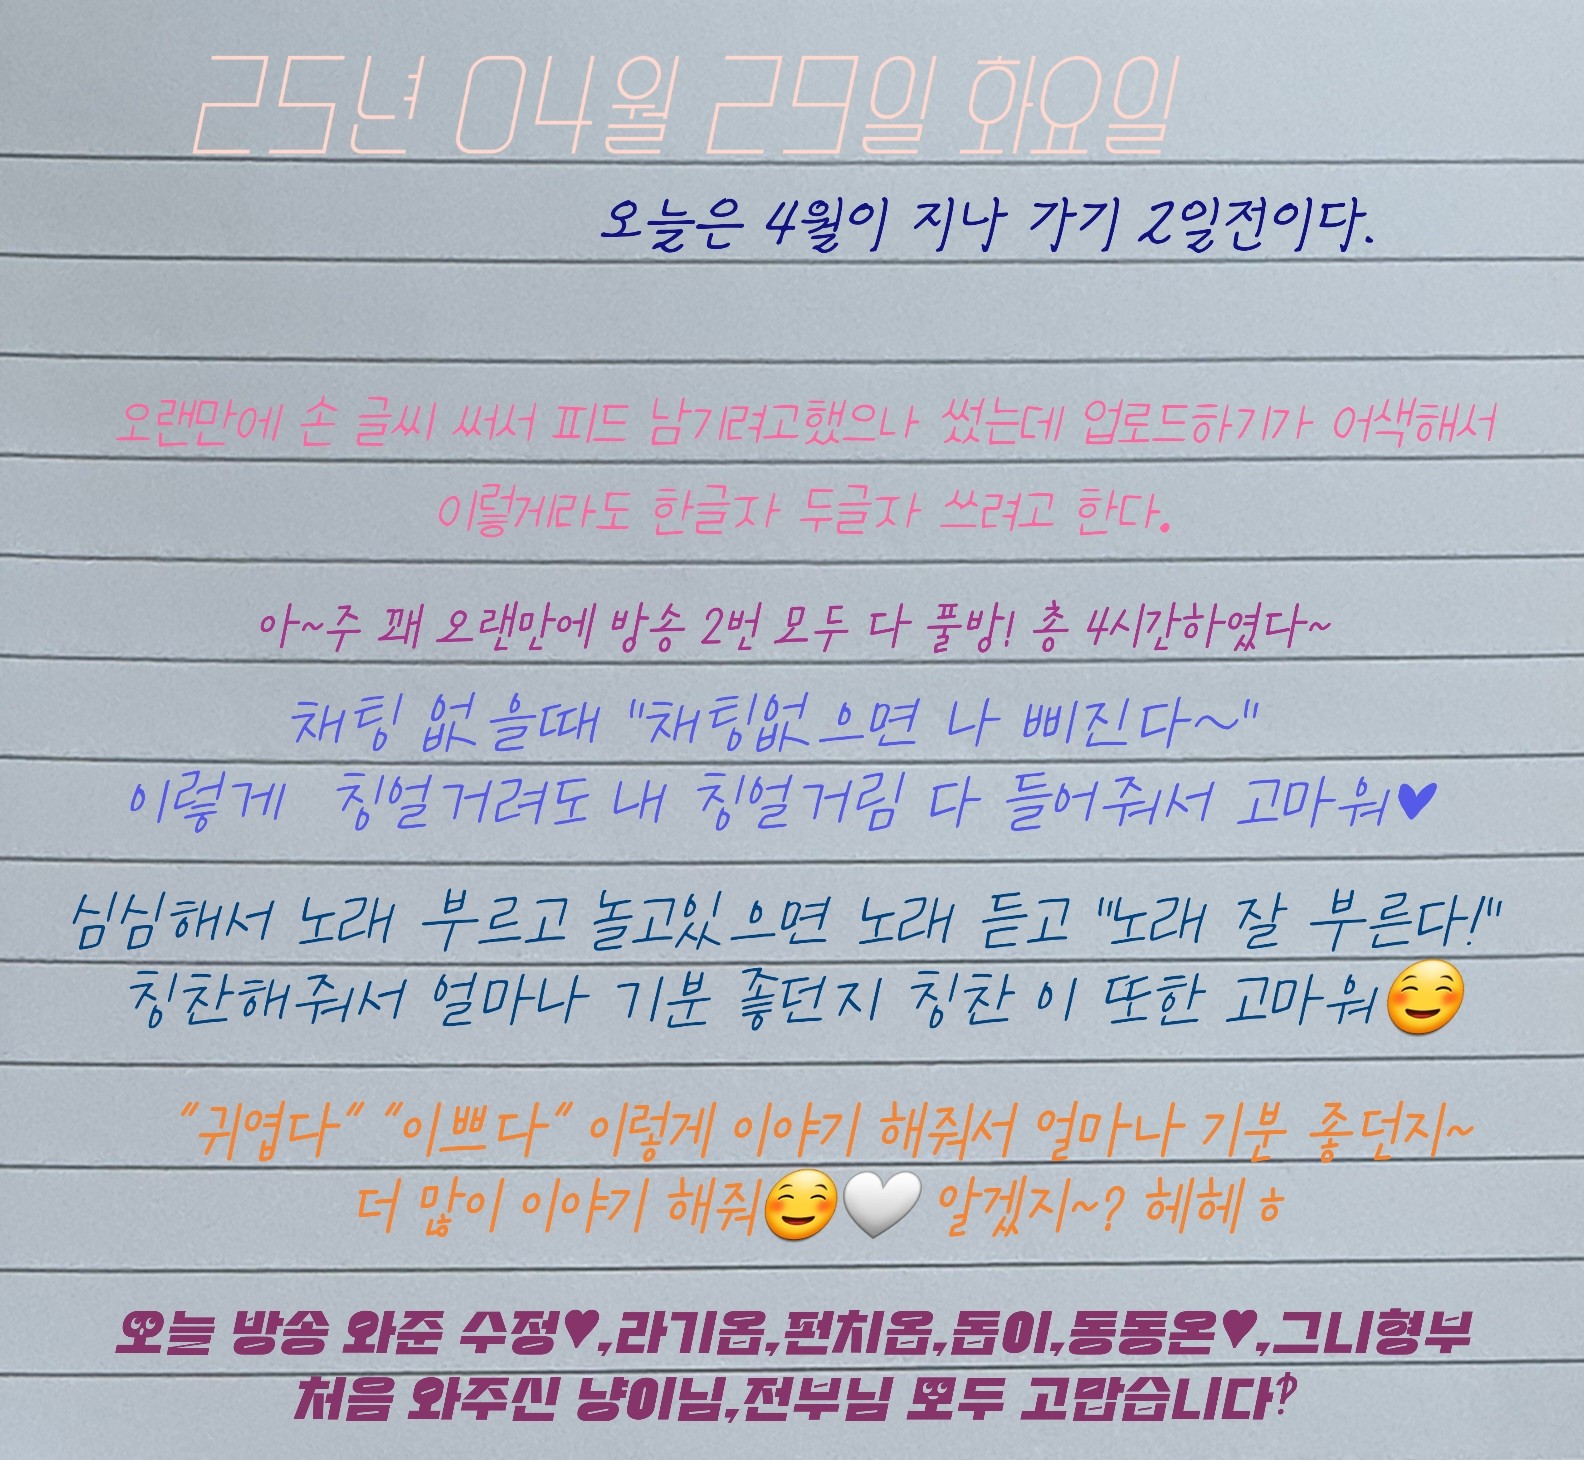 25년 04월 29일 화요일
오늘은 4월이 지나 가기 2일전이다.
오랜만에 손 글씨 써서 피드 남기려고했으나 썼는데 업로드하기가 어색해서
이렇게라도 한글자 두글자 쓰려고 한다.
아~주 꽤 오랜만에 방송 2번 모두 다 풀방! 총 4시간하였다~
채팅 없을때 "채팅없으면 나 삐진다~"
이렇게 칭얼거려도 내 칭얼거림 다 들어줘서 고마워♥
심심해서 노래 부르고 놀고있으면 노래 듣고 "노래 잘 부른다!"
칭찬해줘서 얼마나 기분 좋던지 칭찬 이 또한 고마워😊
"귀엽다" "이쁘다" 이렇게 이야기 해줘서 얼마나 기분 좋던지~
더 많이 이야기 해줘😊🤍 알겠지~? 헤헤ㅎ
오늘 방송 와준 수정♥,라기옵,펀치옵,돕이,동동온♥,그니형부
처음 와주신 냥이님,전부님 모두 고맙습니다?